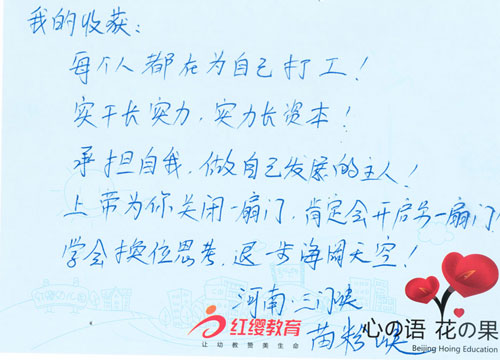 我的收获：
每个人都在为自己打工！
实干长实力，实力长资本！
承担自我，做自己发展的主人！
上帝为你关闭一扇门，肯定会开启另一扇门！
学会换位思考，退一步海阔天空！
河南·三门峡
苗粉
红缨教育
让幼教赞美生命
心の语 花の果
Beijing Hoing Education